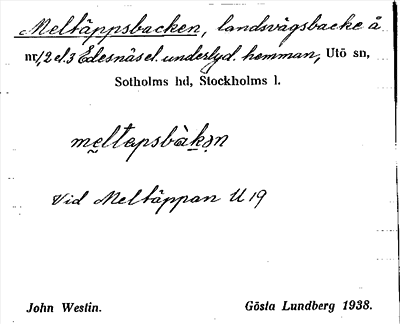 Meltäppsbacken, landsvägsbacke å
nr 1, 2 el. 3 Edesnäs el. underlyd. hemman, Utö sn,
Sotholms hd, Stockholms l.
Vid Meltäppan U 19
John Westin. Gösta Lundberg 1938.